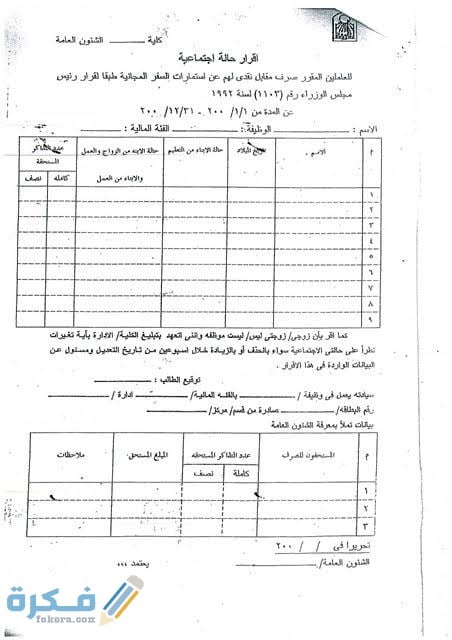 كلية ـــــــ الشئون العامة
اقرار حالة إجتماعية
للعاملين المقرر صرف مقابل نقدى لهم عن استمارات السفر المجانية طبقا لقرار رئيس
مجلس الوزراء رقم (١١٠٣) لسنة ١٩٩٢
عن المدة من ١/١/ ٢٠٠ - ١٢/٣١/ ٢٠٠
الاسم : ـــــــ الوظيفة : ـــــــ الفئة المالية : ـــــــ
م الاســم . تاريخ الميلاد حالة الابناء من التعليم حالة الابنه من الزواج والعمل والابناء من العمل عدد التذاكر المستحقة
كامله نصف
١
٢
٣
٤
٥
٦
٧
٨
٩
كما اقر بأن زوجى/ زوجتى ليس/ ليست موظفه واننى اتعهد بتبليغ الكلية/ الادارة بأية تغيرات
تطرأ على حالتى الاجتماعية سواء بالحذف أو بالزيادة خلال إسبوعين من تاريخ التعديل ومسئول عن
البيانات الواردة فى هذا الاقرار .
توقيع الطالب : ـــــــ
سيادته يعمل فى وظيفة / ـــــــ بالفئه المالية/ ـــــــ ادارة / ـــــــ
رقم البطاقه/ ـــــــ صادرة من قسم/ مركز/ ـــــــ
بيانات تملأ بمعرفة الشئون العامة
م المستحقون للصرف عدد التذاكر المستحقه المبلغ المستحق ملاحظات
كاملة نصف
١
٢
٣
تحريرا فى / / ٢٠٠
الشئون العامة/ ـــــــ يعتمد ,,,
فكرة
fokora.com